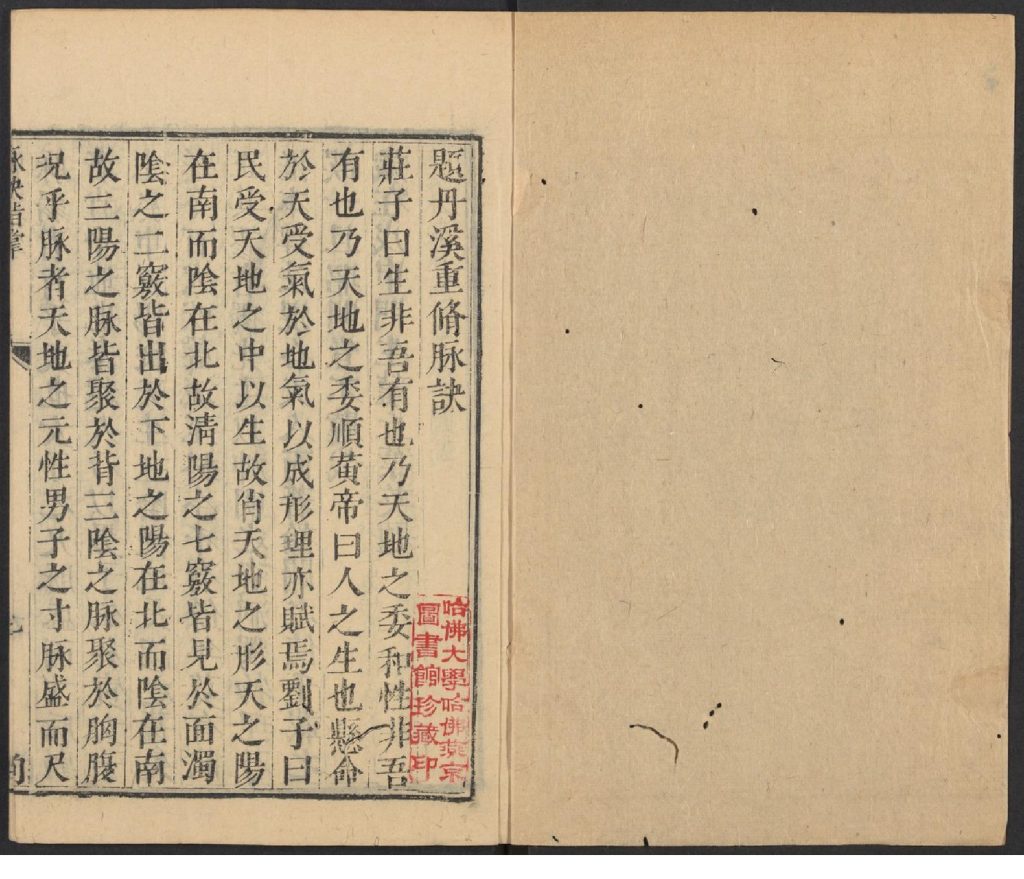 題丹溪重脩脉訣
莊子曰生非吾有也乃天地之委和性非吾
有也乃天地之委順黃帝曰人之生也懸命
於天受氣於地氣以成形理亦賦焉劉子曰
民受天地之中以生故肖天地之形天之陽
在南而陰在北故清陽之七竅皆見於面濁
陰之二竅皆出於下地之陽在北而陰在南
故三陽之脉皆聚於背三陰之脉聚於胸腹
况乎脉者天地之元性男子之寸脉盛而尺
脉訣指掌
哈佛大學哈佛燕京
圖書館珍藏印